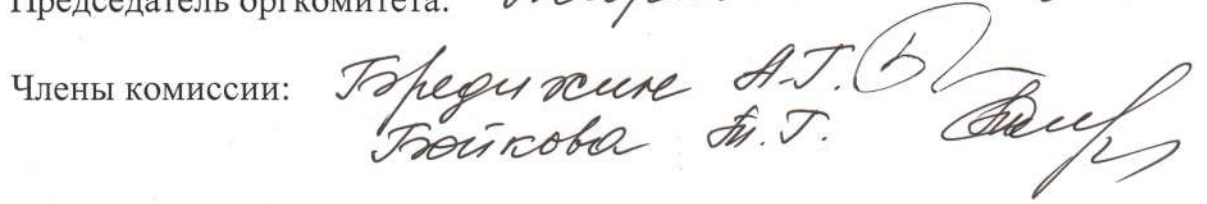 Председатель оргкомитета:
Члены комиссии: Бредихине А.Г.
Бойкова Т.Г.